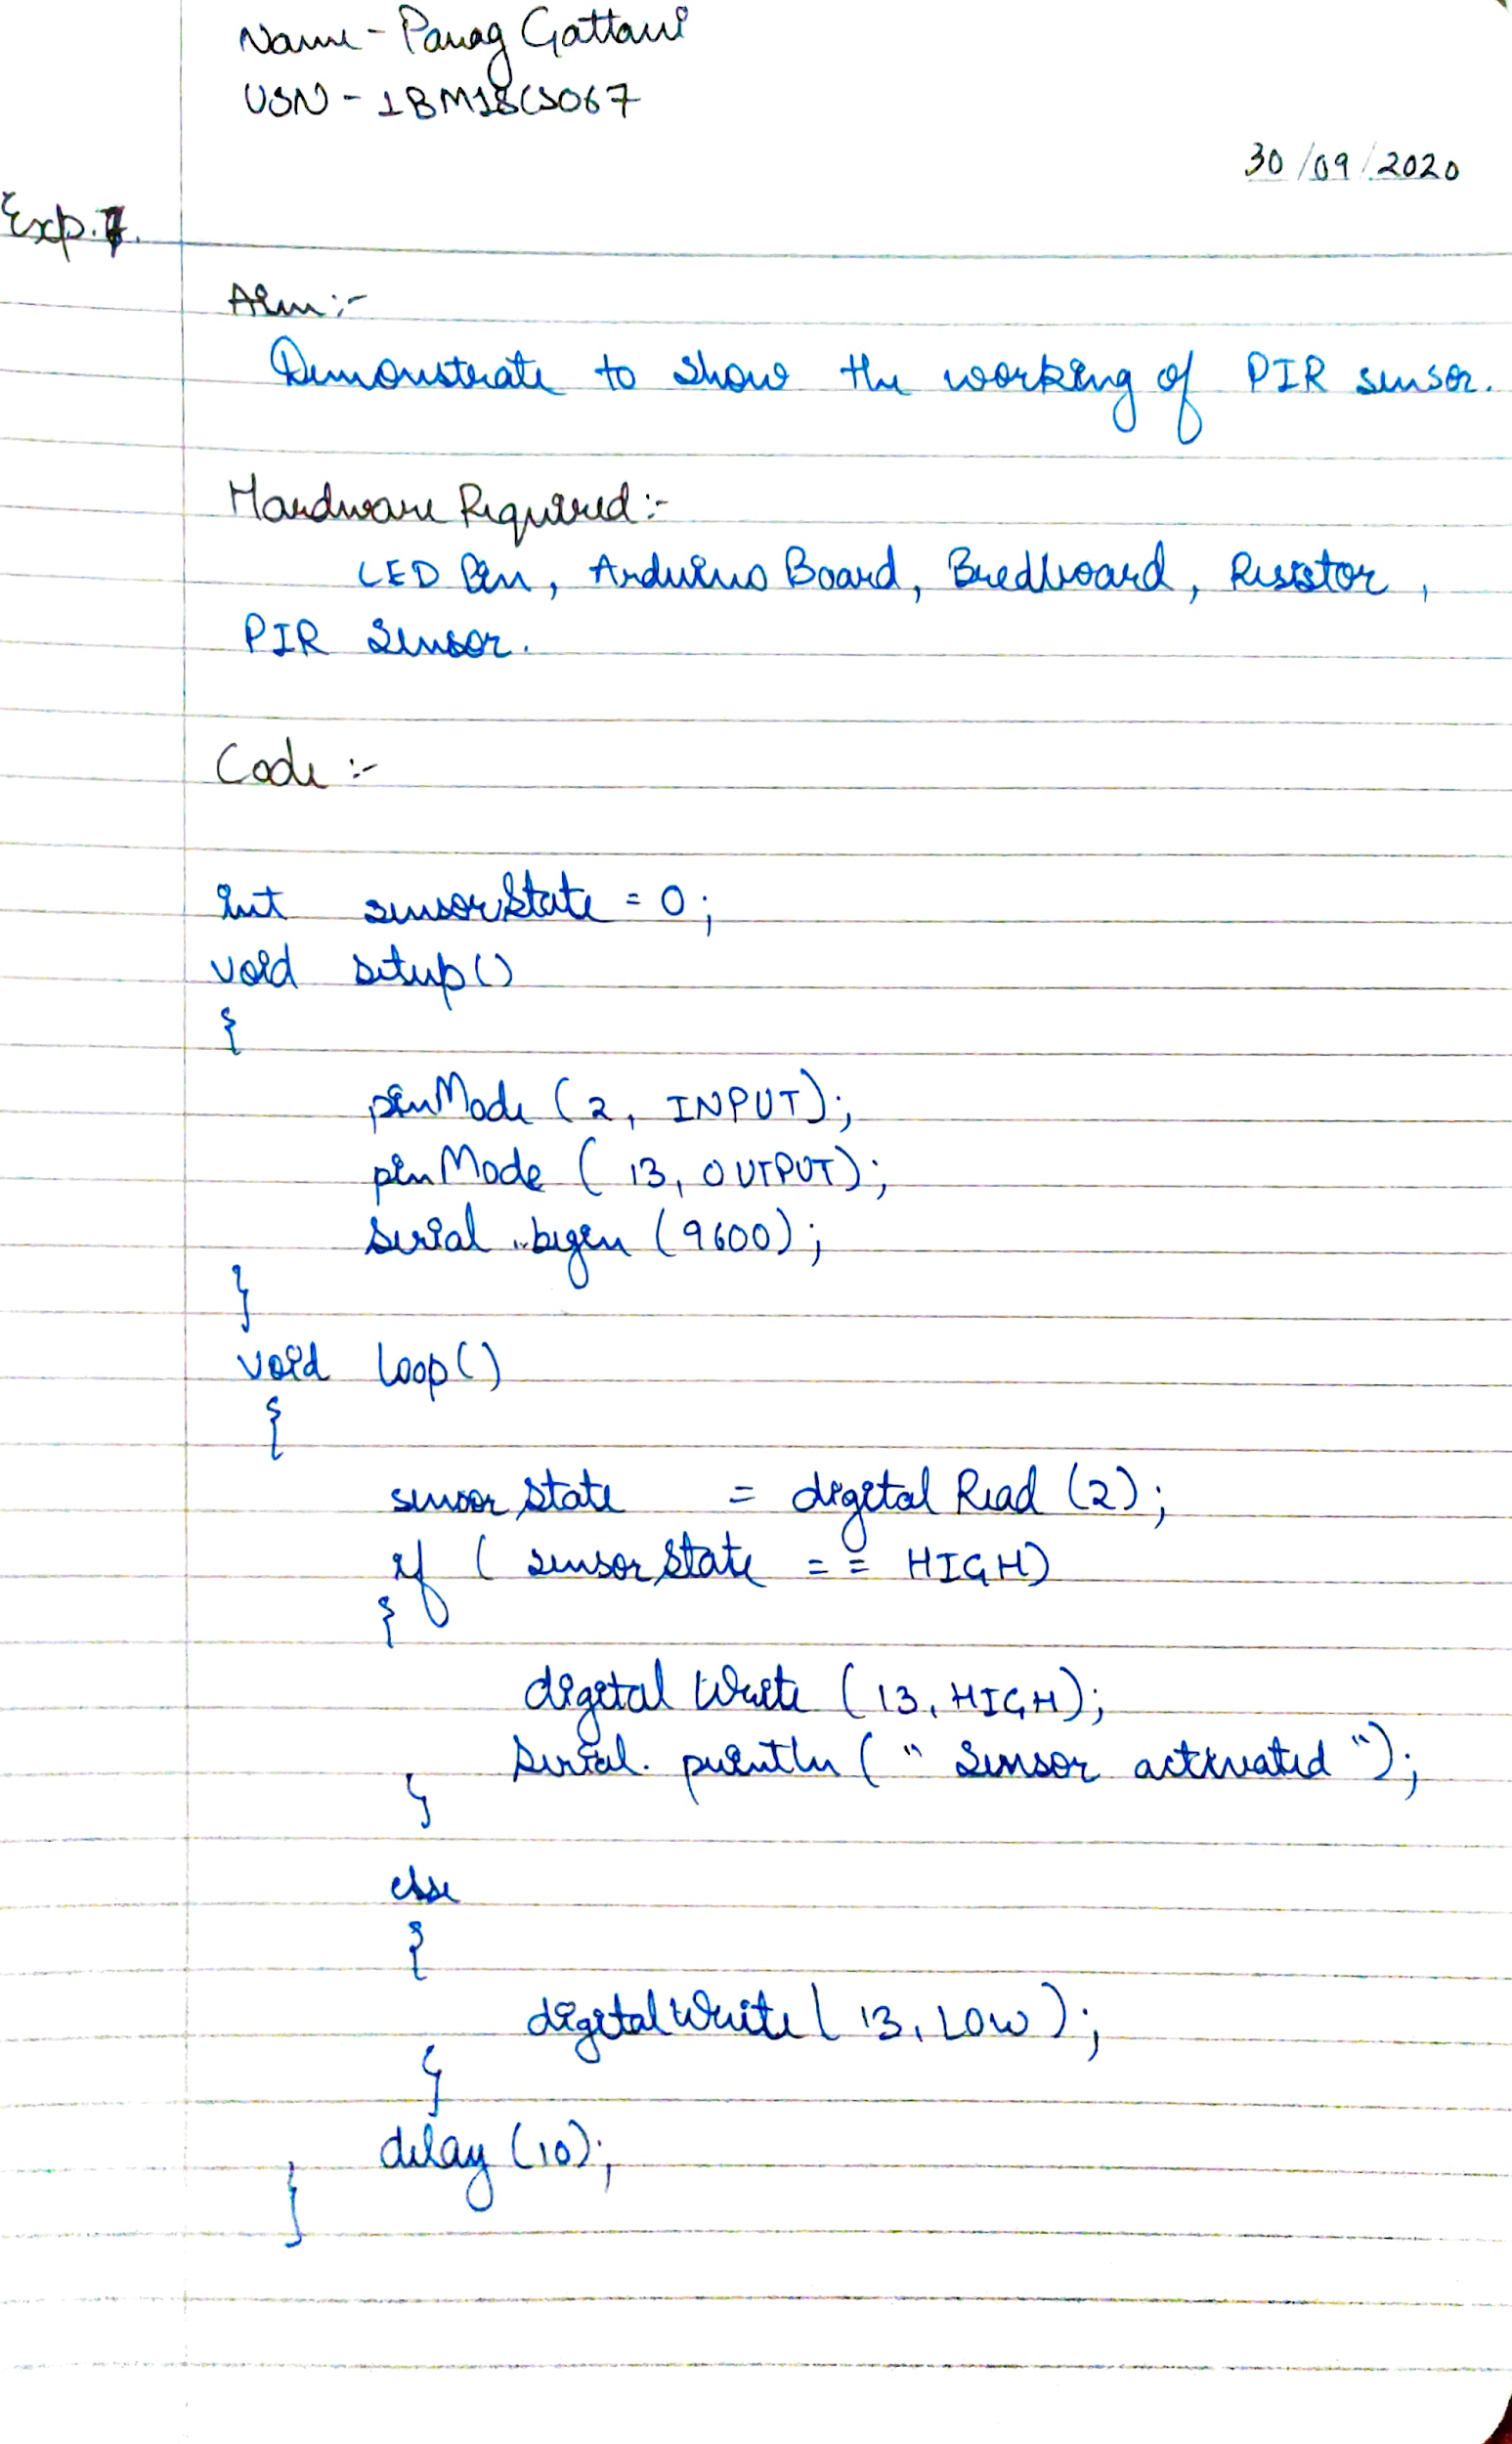 Name - Parag Gattani
USN - 1BM18CS067
30/09/2020
Exp. 7.
Aim :-
Demonstrate to show the working of PIR sensor.
Hardware Required :-
LED Pin, Arduino Board, Bredboard, Resistor,
PIR Sensor.
Code :-
int sensorState = 0;
void setup()
{
pinMode (2, INPUT);
pinMode (13, OUTPUT);
Serial.begin (9600);
}
void loop()
{
sensorState = digitalRead (2);
if (sensorState == HIGH)
{
digitalWrite (13, HIGH);
Serial.println (" Sensor activated ");
}
else
{
digitalWrite (13, LOW);
}
delay (10);
}